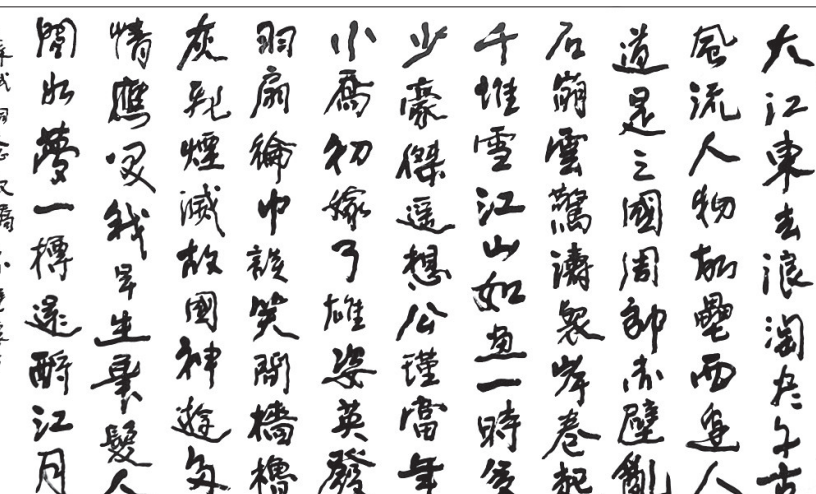 大江東去浪淘盡千古
風流人物故壘西邊人
道是三國周郎赤壁亂
石崩雲驚濤裂岸卷起
千堆雪江山如畫一時多
少豪傑遙想公瑾當年
小喬初嫁了雄姿英發
羽扇綸巾談笑間檣櫓
灰飛煙滅故國神遊多
情應笑我早生華髮人
間如夢一樽還酹江月